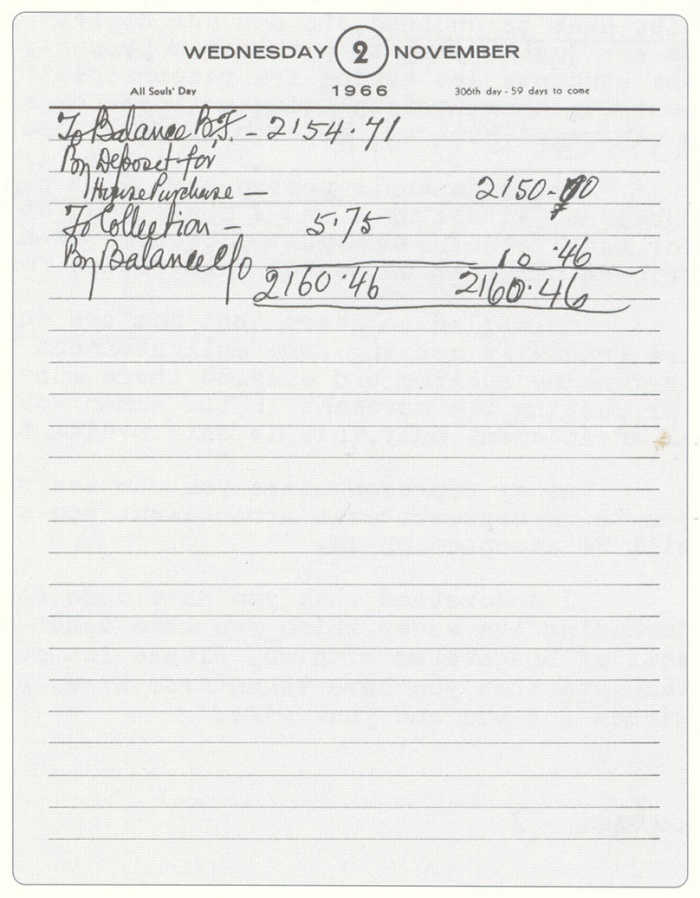 WEDNESDAY 2 NOVEMBER
All Souls' Day 1966 306th day - 59 days to come
To Balance B.F. - 2154.71
By Deposit for
House Purchase — 2150-00
To Collection - 5.75
By Balance c/o 10.46
2160.46 2160.46